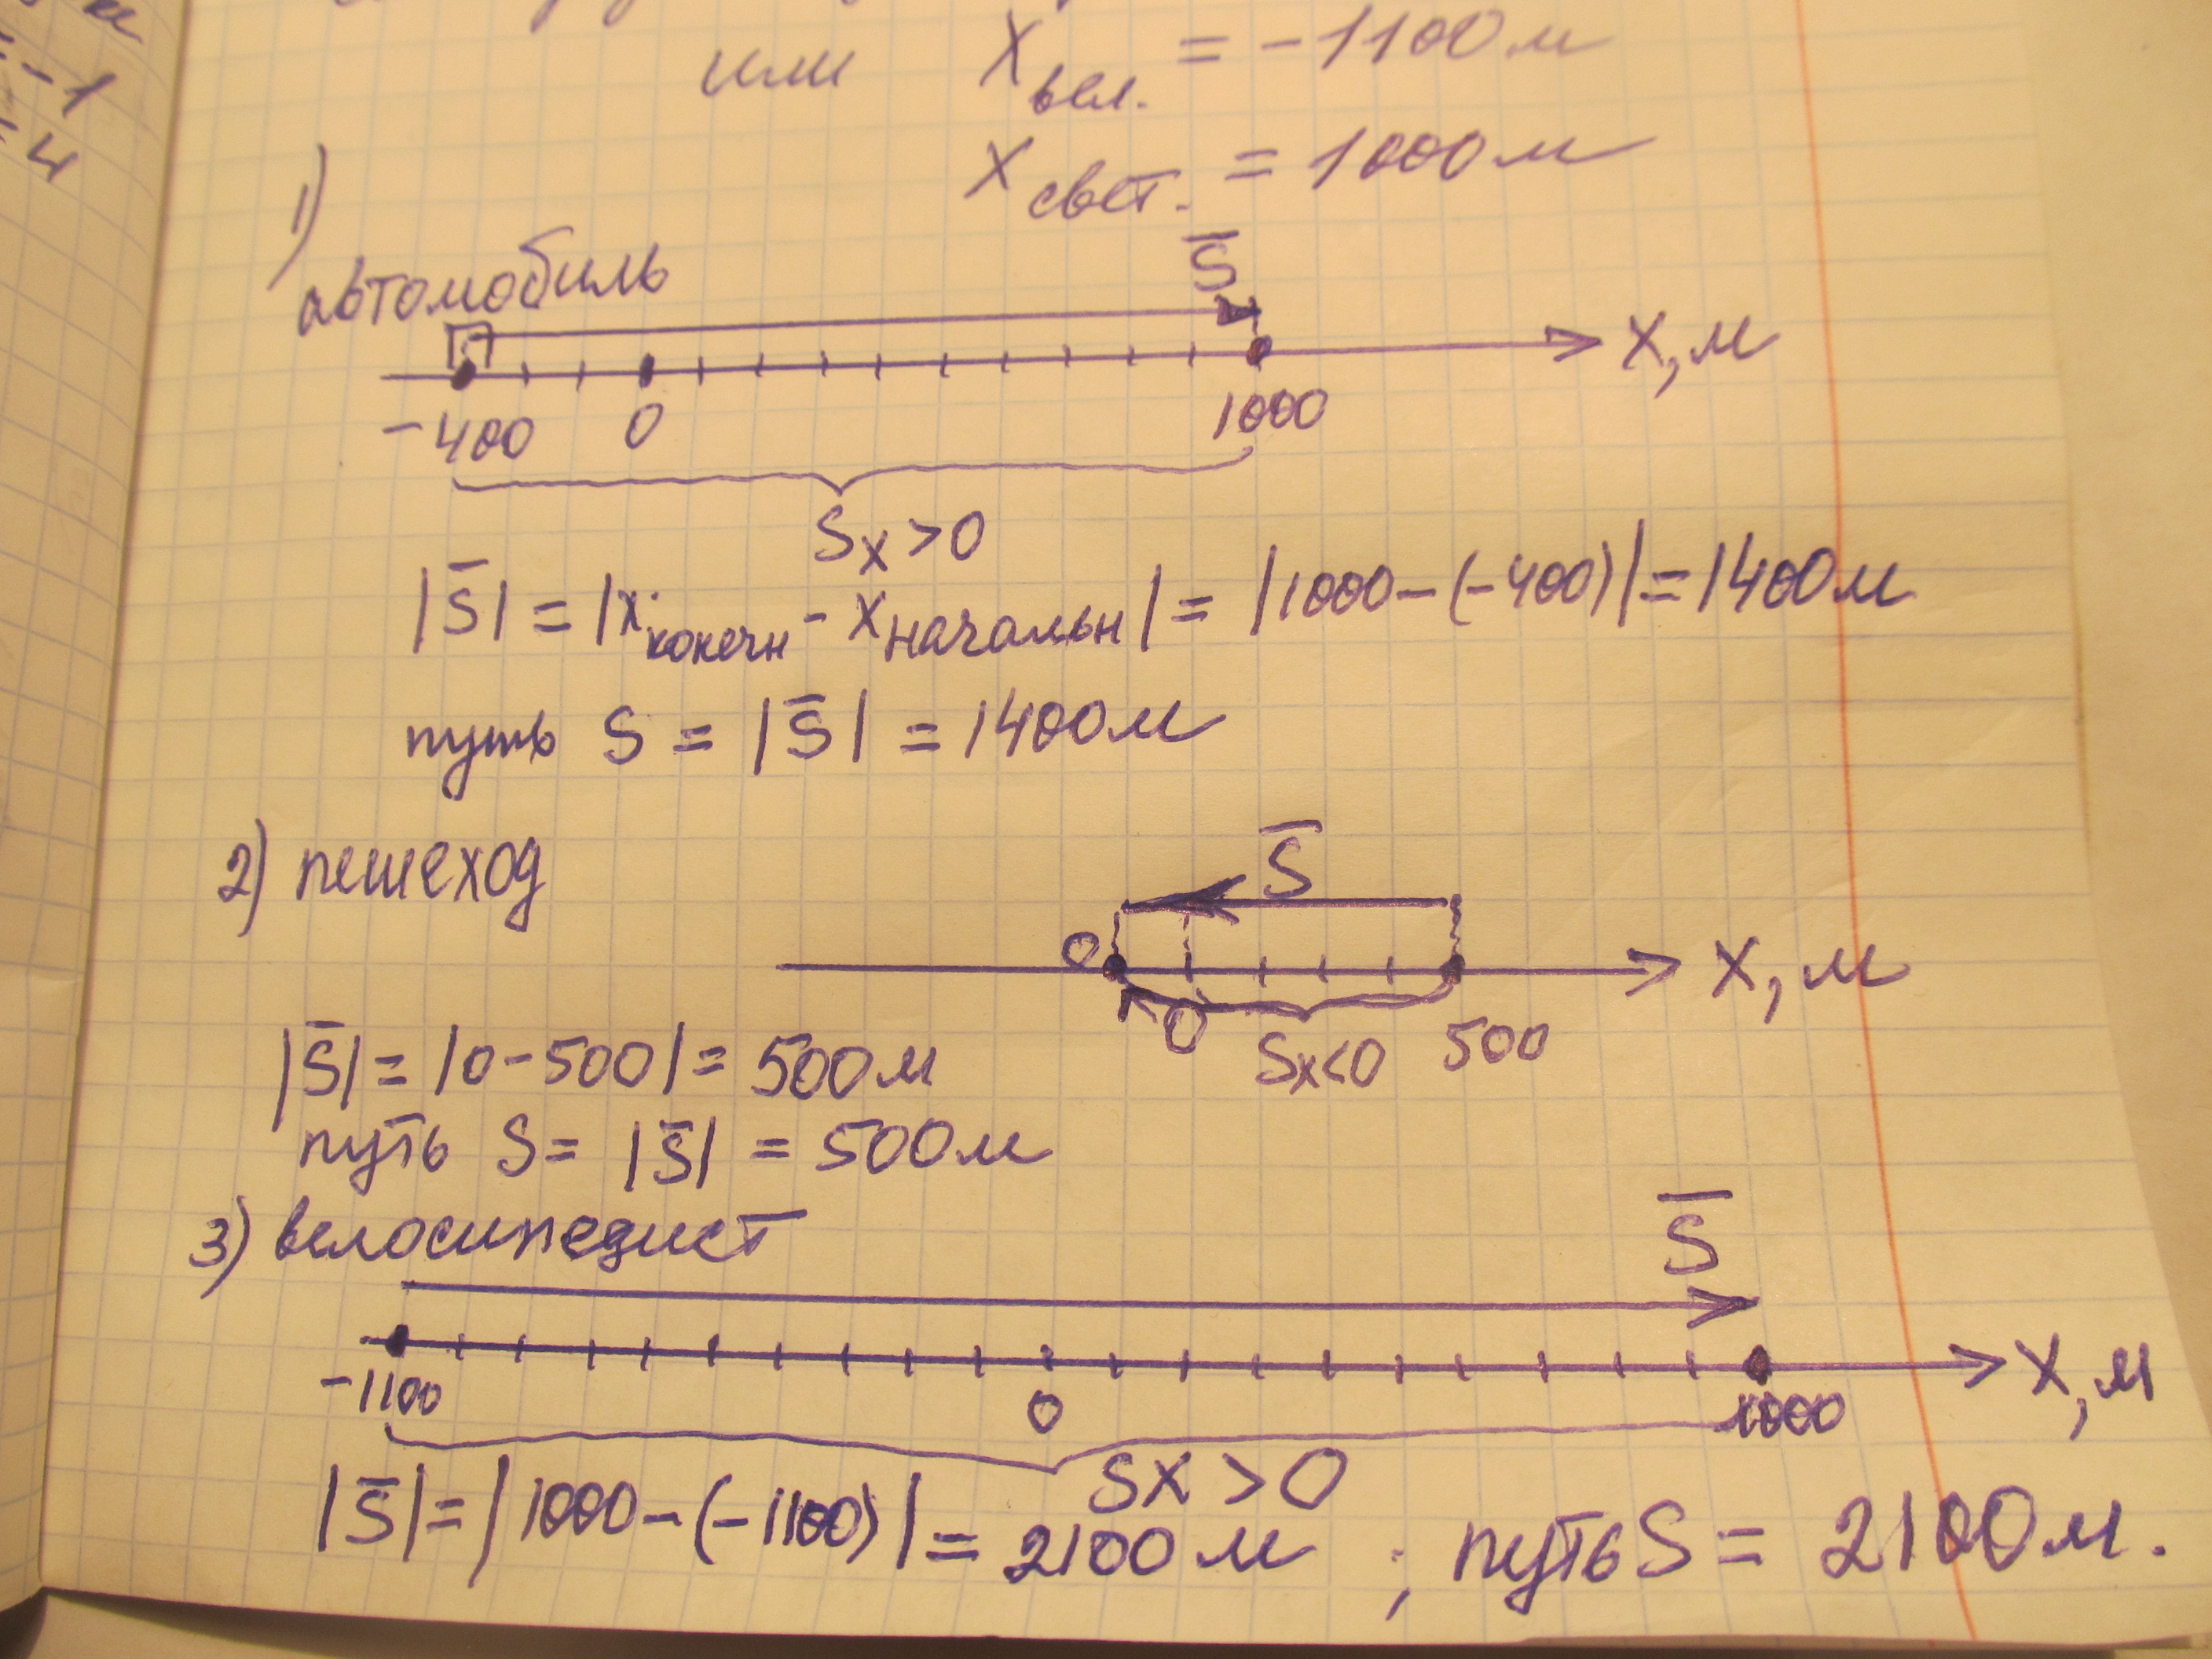 или X вел. = -1100м
X свет. = 1000м
1)
автомобиль
S̅
-400 0 1000 X, м
Sx>0
|S̅| = |x конечн - x начальн| = |1000-(-400)| = 1400м
путь S = |S̅| = 1400м
2) пешеход
S̅
0 X, м
0 Sx<0 500
|S̅| = |0-500| = 500м
путь S = |S̅| = 500м
3) велосипедист
S̅
-1100 0 1000 X, м
Sx >0
|S̅| = |1000-(-1100)| = 2100м ; путь S = 2100м.